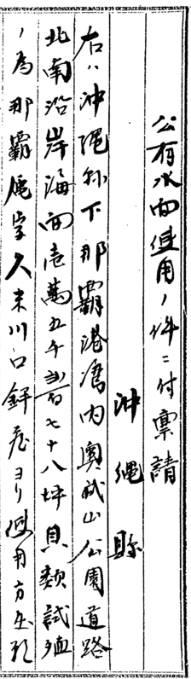 公有水面使用ノ件ニ付稟請
沖縄縣
右ハ沖縄縣下那覇港湾内奥武山公園道路
北南沿岸海面壱萬五千百七十八坪貝類試殖
ノ為那覇區字久米川口ヨリ使用方出願